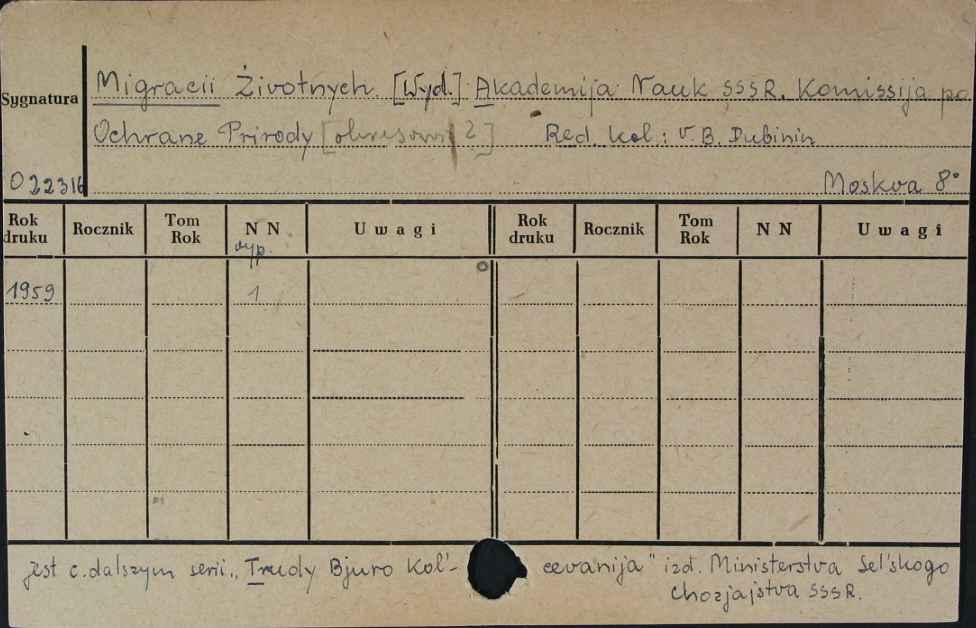 Migracii Životnych. [Wyd.] Akademija Nauk SSSR. Komissija po
Sygnatura
Ochrane Prirody [okresowe ?] Red. kol.: V. B. Dubinin
022316 Moskva 8°
Rok druku Rocznik Tom Rok NN Uwagi Rok druku Rocznik Tom Rok NN Uwagi
vyp.
1959 1
jest c. dalszym serii „Trudy Bjuro Kol'- cevanija" izd. Ministerstva Sel'skogo
Chozjajstva SSSR.